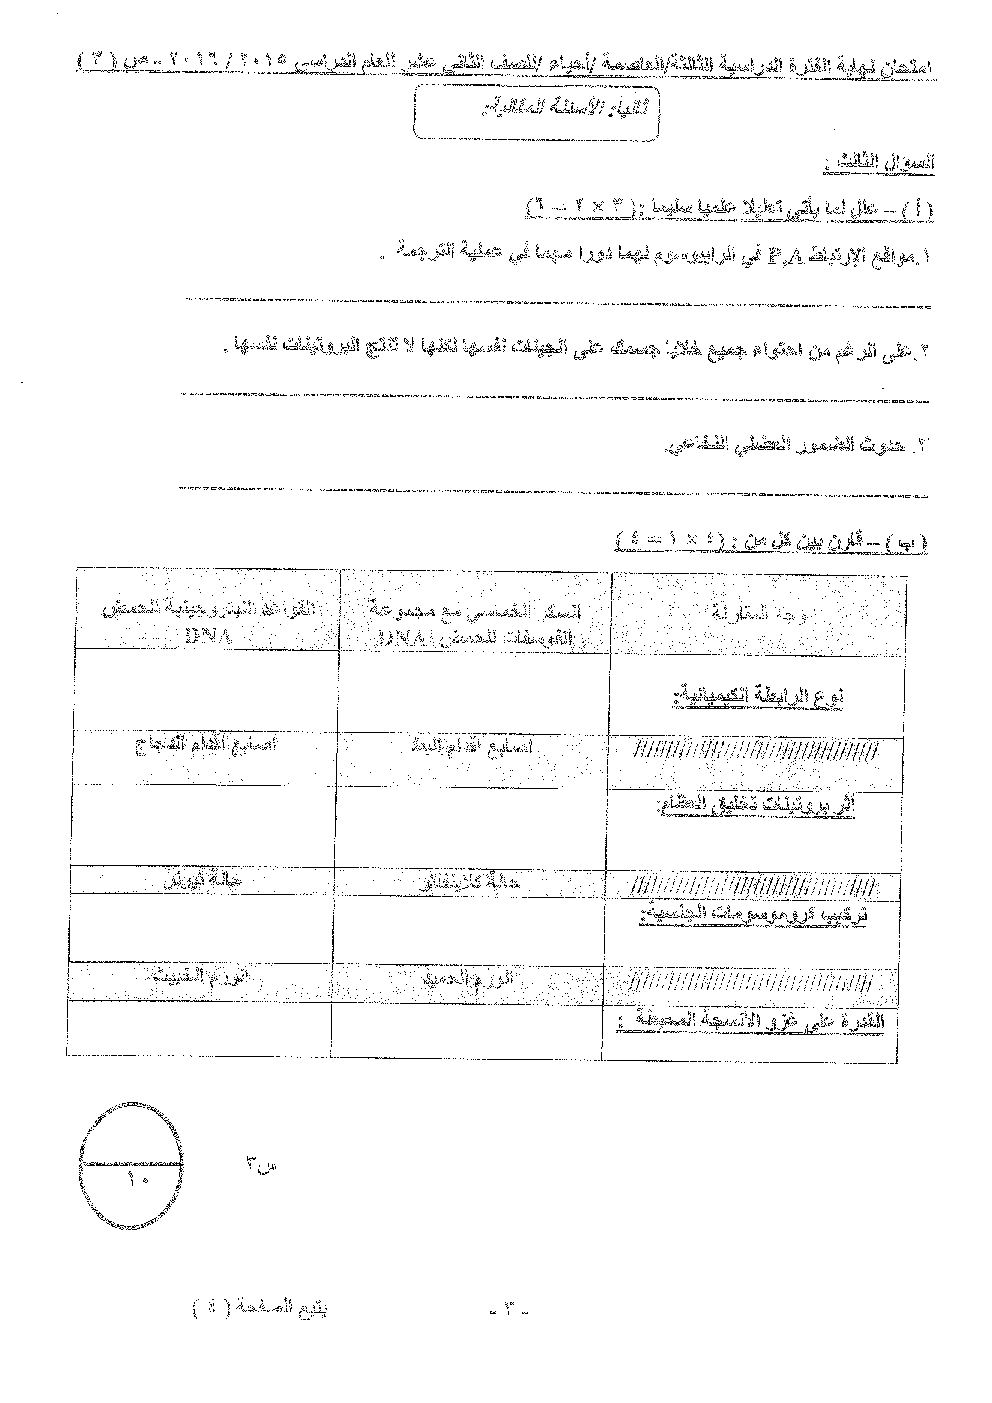 امتحان نهاية الفترة الدراسية الثالثة/العاصمة /أحياء /للصف الثاني عشر العام الدراسي ٢٠١٥ / ٢٠١٦ - ص ( ٣ )
ثانيا: الأسئلة المقالية:
السؤال الثالث :
( أ ) – علل لما يأتي تعليلا علميا سليما : ( ٣ × ٢ = ٦ )
١.مواقع الإرتباط P,A في الرايبوسوم لهما دورا مهما في عملية الترجمة .
٢.على الرغم من احتواء جميع خلايا جسمك على الجينات نفسها لكنها لا تنتج البروتينات نفسها .
٣. حدوث الضمور العضلي النخاعي.
( ب ) – قارن بين كل من : ( ٤ × ١ = ٤ )
وجه المقارنة
السكر الخماسي مع مجموعة الفوسفات للحمض DNA
القواعد النيتروجينية للحمض DNA
نوع الرابطة الكيميائية:
اصابع أقدام البط
اصابع أقدام الدجاج
أثر بروتينات تخليق العظام:
حالة كلاينفلتر
حالة تيرنر
تركيب كروموسومات الجنسية:
الورم الحميد
الورم الخبيث
القدرة على غزو الأنسجة المحيطة :
س٣
١٠
- ٣ -
يتبع الصفحة ( ٤ )